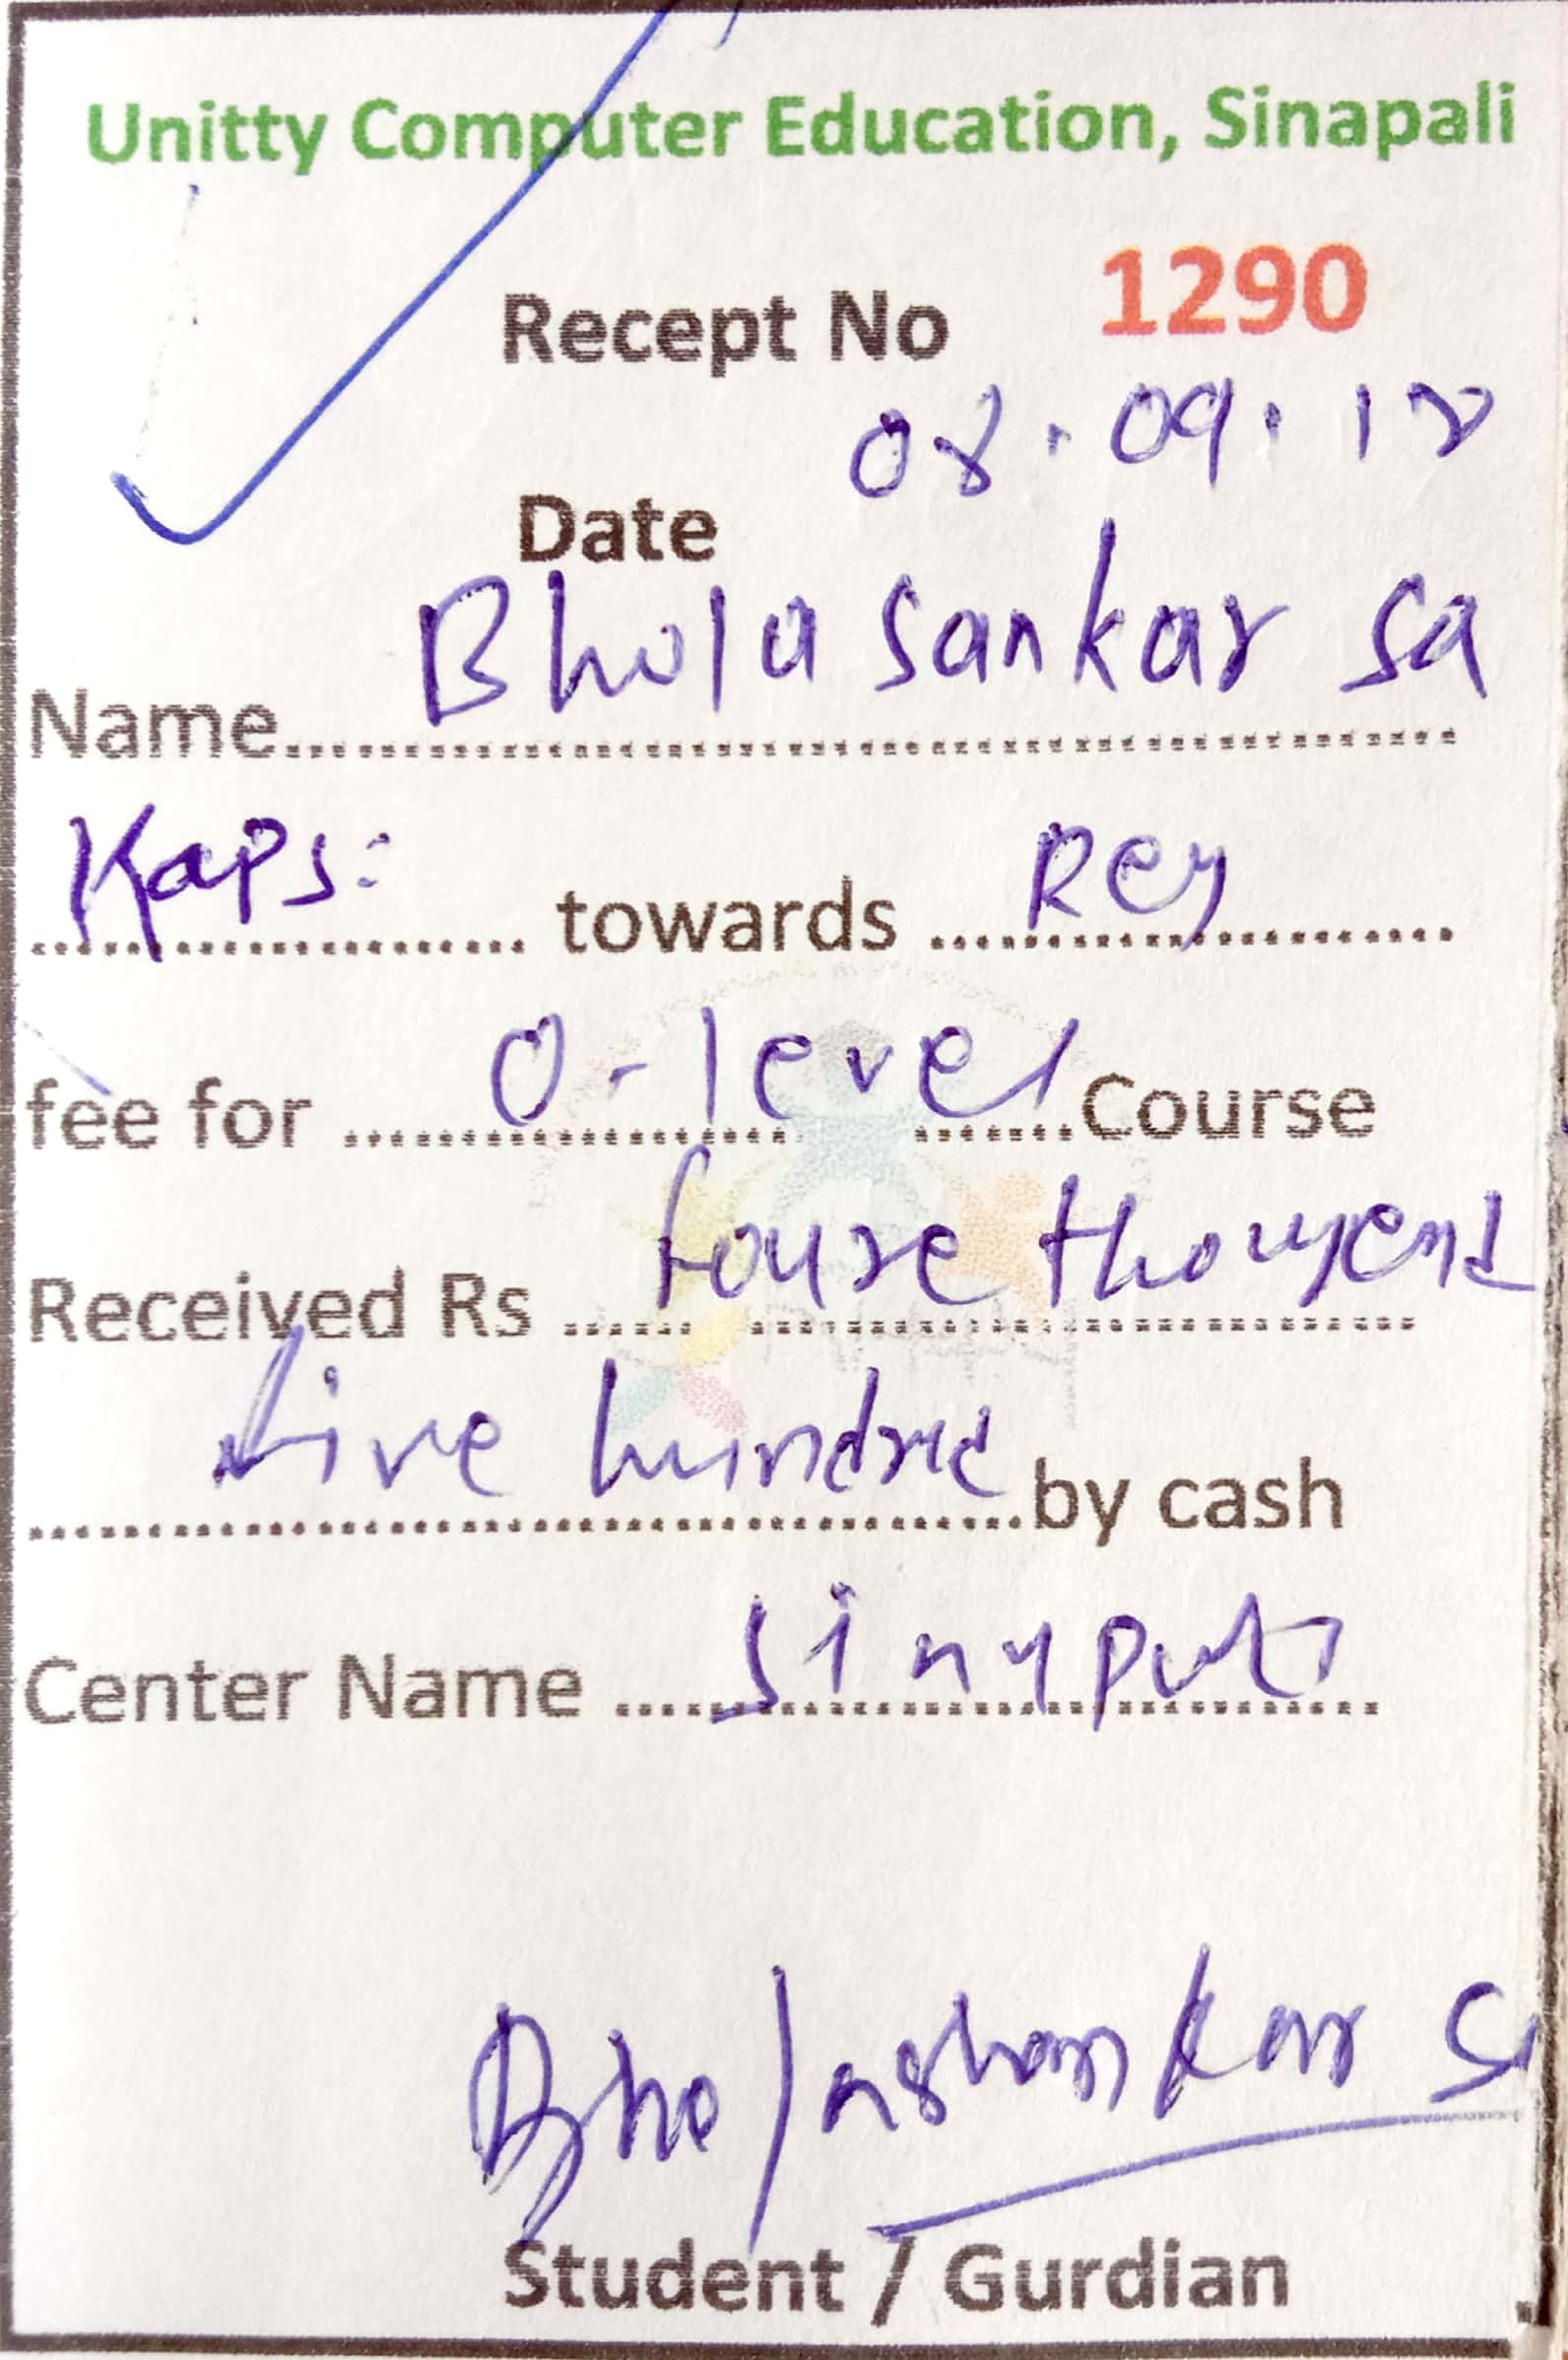 Unitty Computer Education, Sinapali
Recept No 1290
08.09.18
Date
Bhola Sankar Sa
Name..............................
Kaps: towards Reg
fee for O-level Course
Received Rs foure thousend
five hundred by cash
Center Name Sinapali
Bholashankar Sa
Student / Gurdian